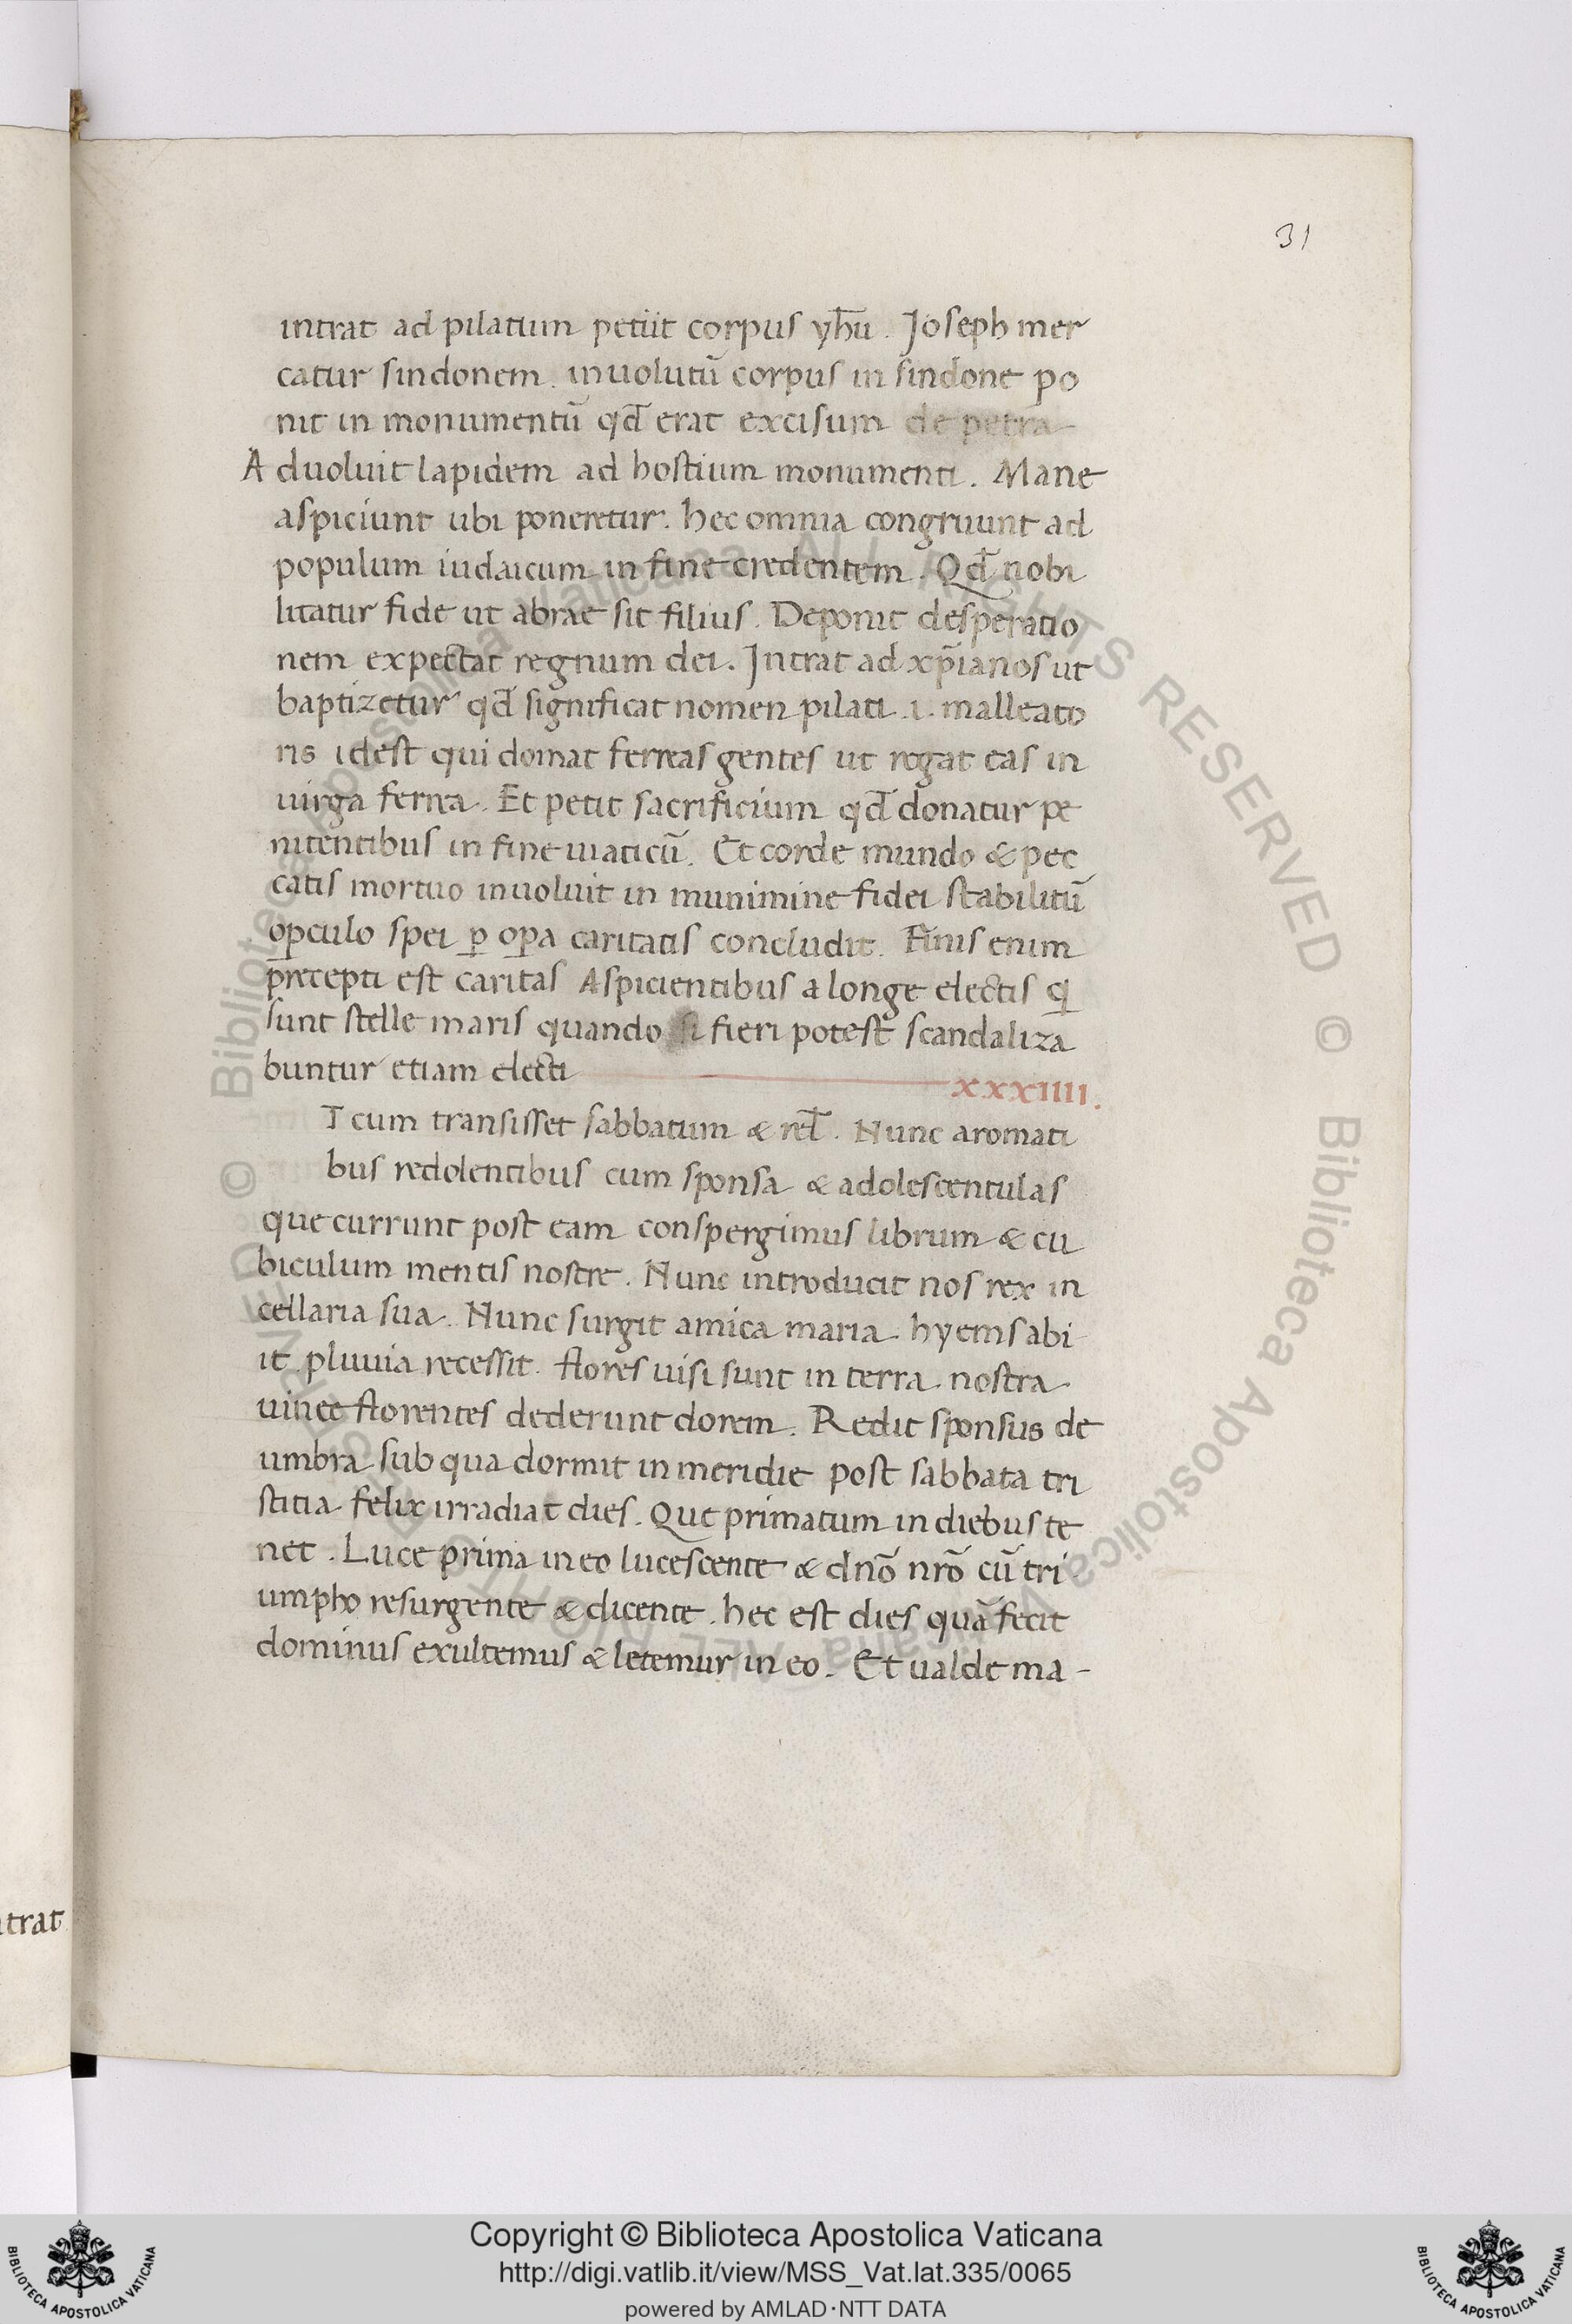 31
intrat ad pilatum petiit corpus yh̄u . Joseph mer
catur sindonem . inuolutū corpus in sindone po
nit in monumentū qd̄ erat excisum de petra
Aduoluit lapidem ad hostium monumenti . Mane
aspiciunt ubi poneretur. hec omnia congruunt ad
populum iudaicum in fine credentem . Qd̄ nobi
litatur fide ut abrae sit filius . Deponit desperatio
nem expectat regnum dei . Intrat ad xp̄ianos ut
baptizetur qd̄ significat nomen pilati .i. malleato
ris idest qui domat ferreas gentes ut regat eas in
uirga ferrea . Et petit sacrificium qd̄ donatur pe
nitentibus in fine uiaticū . Et corde mundo & pec
catis mortuo inuoluit in munimine fidei stabilitū
oꝑculo spei ꝑ oꝑa caritatis concludit . Finis enim
p̄recepti est caritas Aspicientibus a longe electis q̄
sunt stelle maris quando si fieri potest scandaliza
buntur etiam electi
xxxiiii.
T cum transisset sabbatum & rel̄ . Nunc aromati
bus redolentibus cum sponsa & adolescentulas
que currunt post eam conspergimus librum & cu
biculum mentis nostre . Nunc introducit nos rex in
cellaria sua . Nunc surgit amica maria . hyems abi
it pluuia recessit . flores uisi sunt in terra nostra
uinee florentes dederunt dorem . Redit sponsus de
umbra sub qua dormit in meridie post sabbata tri
stitia felix irradiat dies . Que primatum in diebus te
net . Luce prima in eo lucescente & dn̄o nr̄o cū tri
umpho resurgente & dicente . hec est dies quā fecit
dominus exultemus & letemur in eo . Et ualde ma-
trat
© Biblioteca Apostolica Vaticana ALL RIGHTS RESERVED © Biblioteca Apostolica Vaticana ALL RIGHTS RESERVED
Copyright © Biblioteca Apostolica Vaticana
http://digi.vatlib.it/view/MSS_Vat.lat.335/0065
powered by AMLAD·NTT DATA
BIBLIOTECA APOSTOLICA VATICANA
BIBLIOTECA APOSTOLICA VATICANA